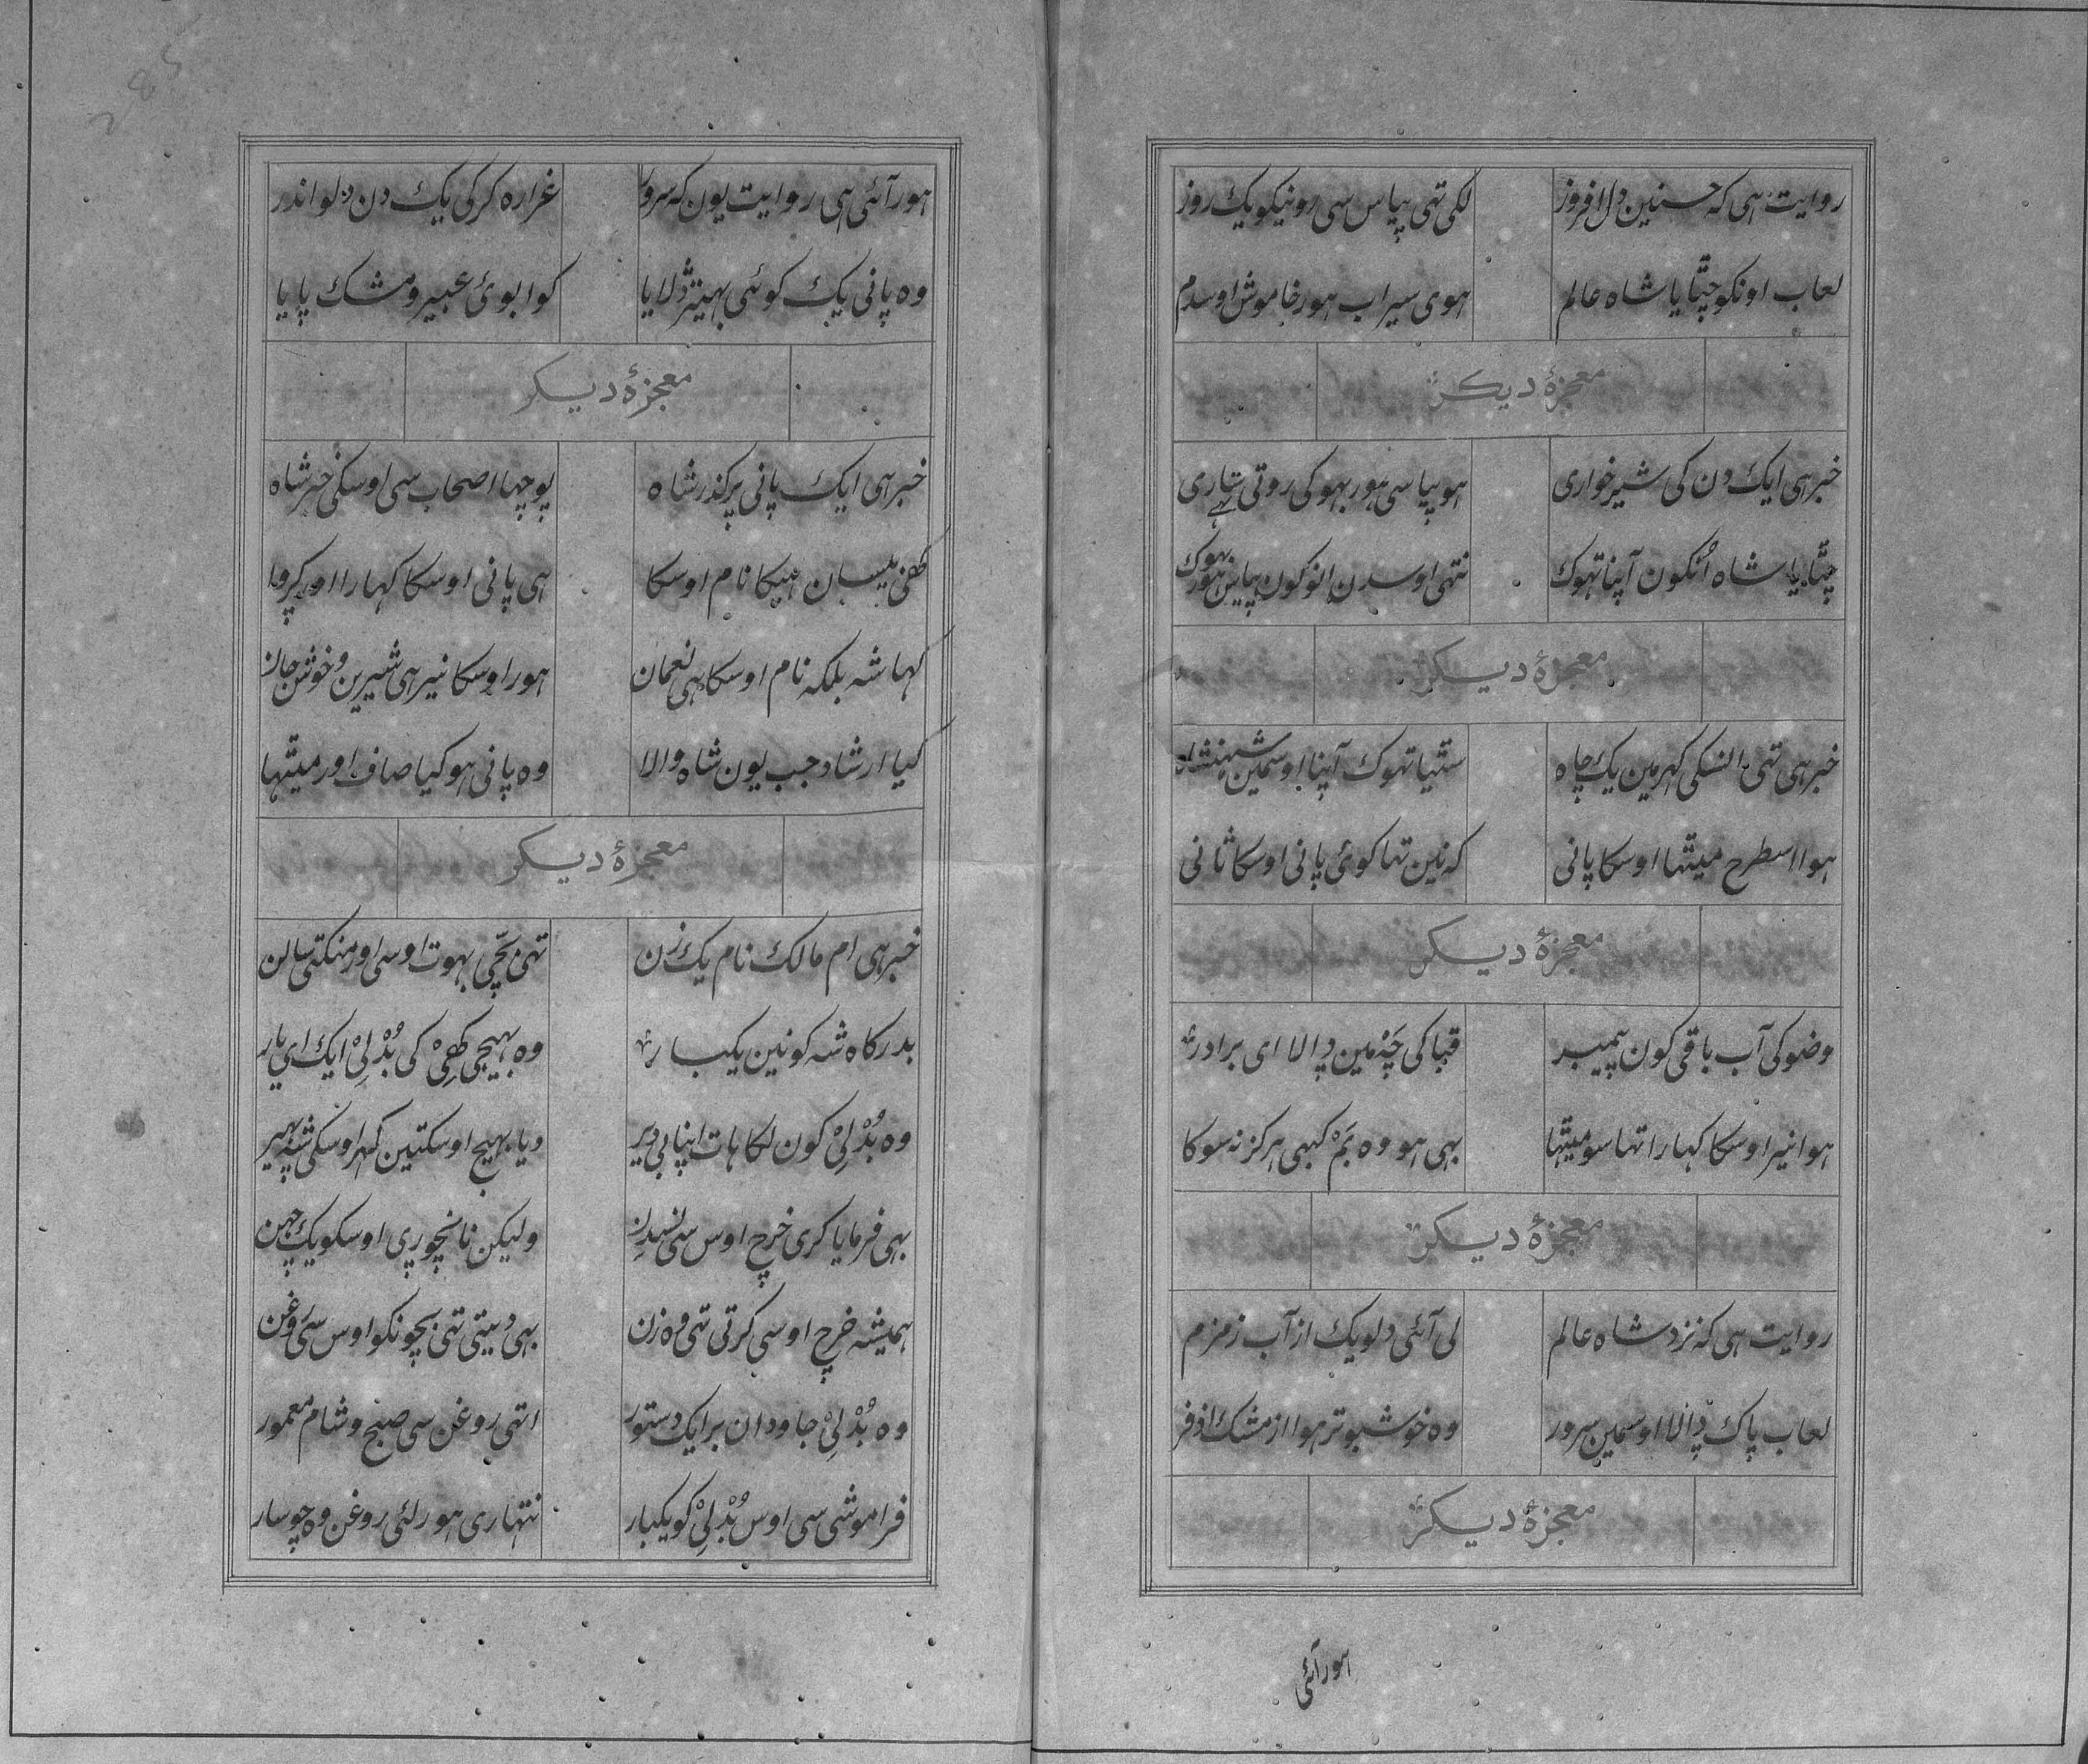 روایت ہی کہ حسنین دل افروز لکی تہی پیاس سی رونیکو یک روز
لعاب اونکو چٹایا شاہ عالم ہوی سیراب ہور خاموش اوسدم
معجزۂ دیکر
خبر ہی ایک دن کی شیر خواری ہو پیاسی ہور بہوکی روتی تہی ساری
چٹایا شاہ اُنکون آپنا تہوک نتہی اوسدن انوکون پیاس ہور بہوک
معجزۂ دیکر
خبر ہی تہی انسکی کہر مین یک چاہ سٹیا تہوک آپنا اوسمین شہنشاہ
ہوا اسطرح میٹہا اوسکا پانی کہ نین تہا کوئی پانی اوسکا ثانی
معجزۂ دیکر
وضو کی آب باقی کون پیمبر قبا کی چَہْ مین ڈالا ای برادر
ہوا نیر اوسکا کہارا تہا سو میٹہا بہی ہو وہ بَمْ کبہی ہرکز نہ سوکا
معجزۂ دیکر
روایت ہی کہ نزد شاہ عالم لی آئی دلو یک از آب زمزم
لعاب پاک ڈالا اوسمین سرور وہ خوشبو تر ہوا از مشک اذفر
معجزۂ دیکر
ہور آئی
ہور آئی ہی روایت یون کہ سرور غرارہ کرکی یک دن دلو اندر
وہ پانی یک کوئی بہیتر ڈلایا کوا بوئ عبیر و مشک پایا
معجزۂ دیکر
خبر ہی ایک پانی پر کذر شاہ پوچہا اصحاب سی اوسکی خبر شاہ
کھی بیسان ہیکا نام اوسکا ہی پانی اوسکا کہارا اور کڑوا
کہا شہ بلکہ نام اوسکا ہی نعمان ہور اوسکا نیر ہی شیرین و خوش جان
کیا ارشاد جب یون شاہ والا وہ پانی ہو کیا صاف اور میٹہا
معجزۂ دیکر
خبر ہی ام مالک نام یک زن تہی بچّی بہوت اوسی اور منکتی سالن
بدرکاہ شہ کونین یکبار وہ بہیجی کھِیْ کی بُدْلِیْ ایک ای یار
وہ بُدْلِیْ کون لکا ہات اپنا بی دیر دیا بہیج اوسکتین کہر اوسکی شہ پہیر
بہی فرمایا کری خرچ اوس سی ولیکن نا نچوڑی اوسکو یک چہن
ہمیشہ خرچ اوسی کرتی تہی وہ زن بہی دیتی تہی بچونکو اوس سی روغن
وہ بُدْلِیْ جاودان بر ایک دستور اتہی روغن سی صبح و شام معمور
فراموشی سی اوس بُدْلِیْ کو یکبار نتہاری ہور لئی روغن وہ چوسار